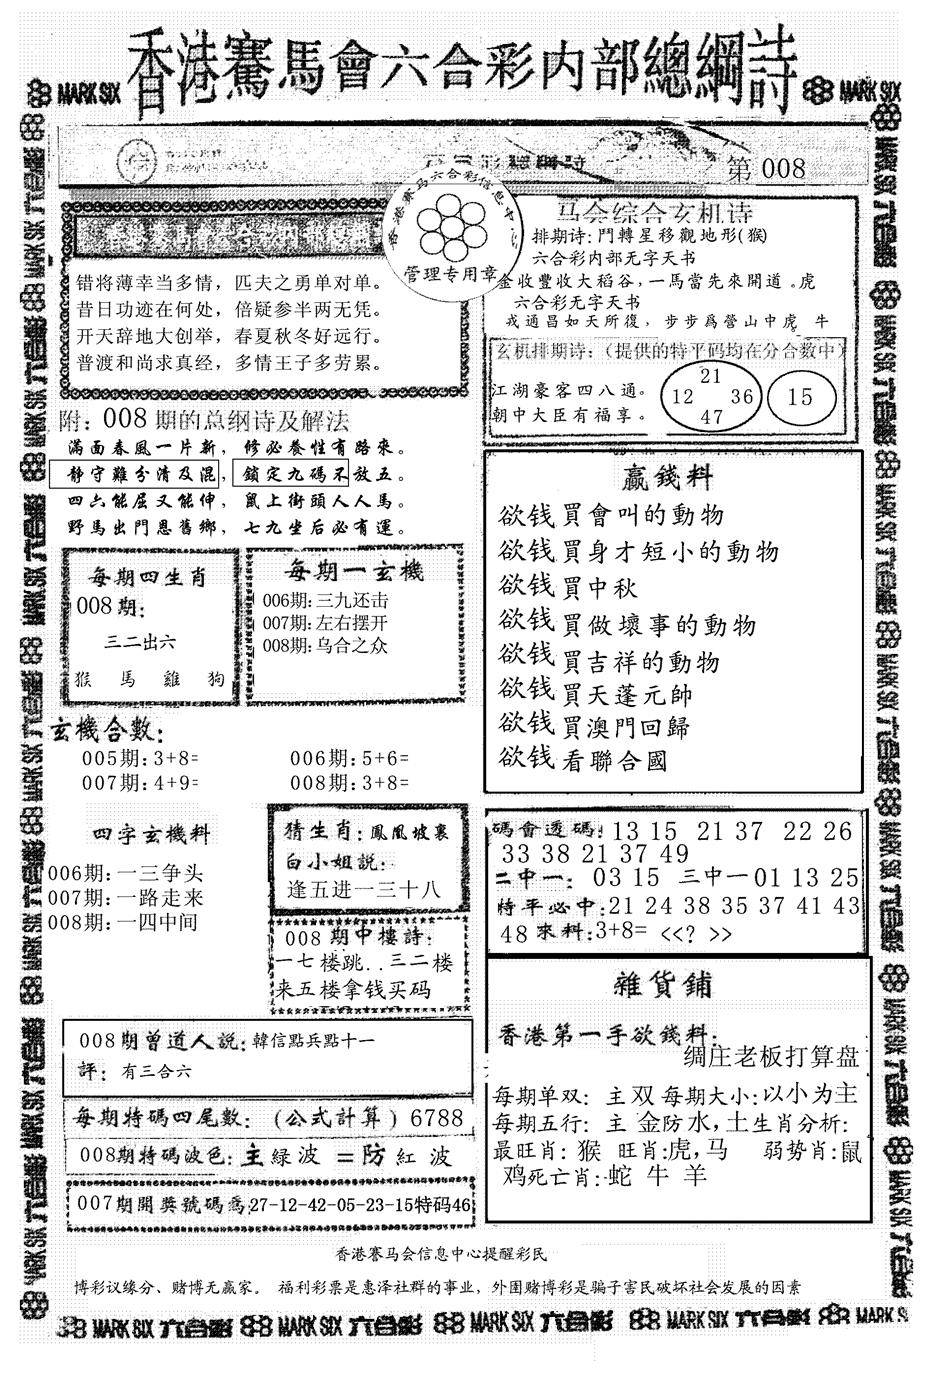 香港賽馬會六合彩内部總綱詩
MARK SIX
MARK SIX
第 008
香港賽马六合彩信息中心
管理专用章
错将薄幸当多情，匹夫之勇单对单。
昔日功迹在何处，倍疑参半两无凭。
开天辞地大创举，春夏秋冬好远行。
普渡和尚求真经，多情王子多劳累。
马会综合玄机诗
排期诗: 鬥轉星移觀地形(猴)
六合彩内部无字天书
金收豐收大稻谷，一馬當先來開道 。虎
六合彩无字天书
戎通昌如天所復，步步爲營山中虎 牛
玄机排期诗：(提供的特平码均在分合数中)
江湖豪客四八通。
朝中大臣有福享。
21
12 36
47
15
附：008 期的总纲诗及解法
滿面春風一片新，修必養性有路來。
静守難分清及混，鎖定九碼不放五。
四六能屈又能伸，鼠上街頭人人馬。
野馬出門恩舊鄉，七九坐后必有運。
每期四生肖
008 期：
三二出六
猴 馬 雞 狗
每期一玄機
006期: 三九还击
007期: 左右摆开
008期: 乌合之众
赢錢料
欲钱買會叫的動物
欲钱買身才短小的動物
欲钱買中秋
欲钱買做壞事的動物
欲钱買吉祥的動物
欲钱買天蓬元帥
欲钱買澳門回歸
欲钱看聯合國
玄機合數：
005期: 3+8= 006期: 5+6=
007期: 4+9= 008期: 3+8=
四字玄機料
006期: 一三争头
007期: 一路走来
008期: 一四中间
猜生肖：鳳凰坡裏
白小姐説：
逢五进一三十八
008 期中樓詩：
一七楼跳..三二楼
来五楼拿钱买码
碼會透碼: 13 15 21 37 22 26
33 38 21 37 49
二中一： 03 15 三中一 01 13 25
特平必中: 21 24 38 35 37 41 43
48 來料: 3+8= <<? >>
雜貨鋪
香港第一手欲錢料：
绸庄老板打算盘
每期单双： 主 双 每期大小: 以小为主
每期五行： 主 金防水, 土生肖分析:
最旺肖: 猴 旺肖: 虎, 马 弱势肖: 鼠
鸡死亡肖: 蛇 牛 羊
008期曾道人説: 韓信點兵點十一
評： 有三合六
每期特碼四尾數： (公式計算) 6788
008期特碼波色: 主 緑 波 =防 紅 波
007期開獎號碼爲: 27-12-42-05-23-15特码46
香港賽马会信息中心提醒彩民
博彩议缘分、赌博无赢家。 福利彩票是惠泽社群的事业，外围赌博彩是骗子害民破坏社会发展的因素
MARK SIX 六合彩 MARK SIX 六合彩 MARK SIX 六合彩 MARK SIX 六合彩 MARK SIX